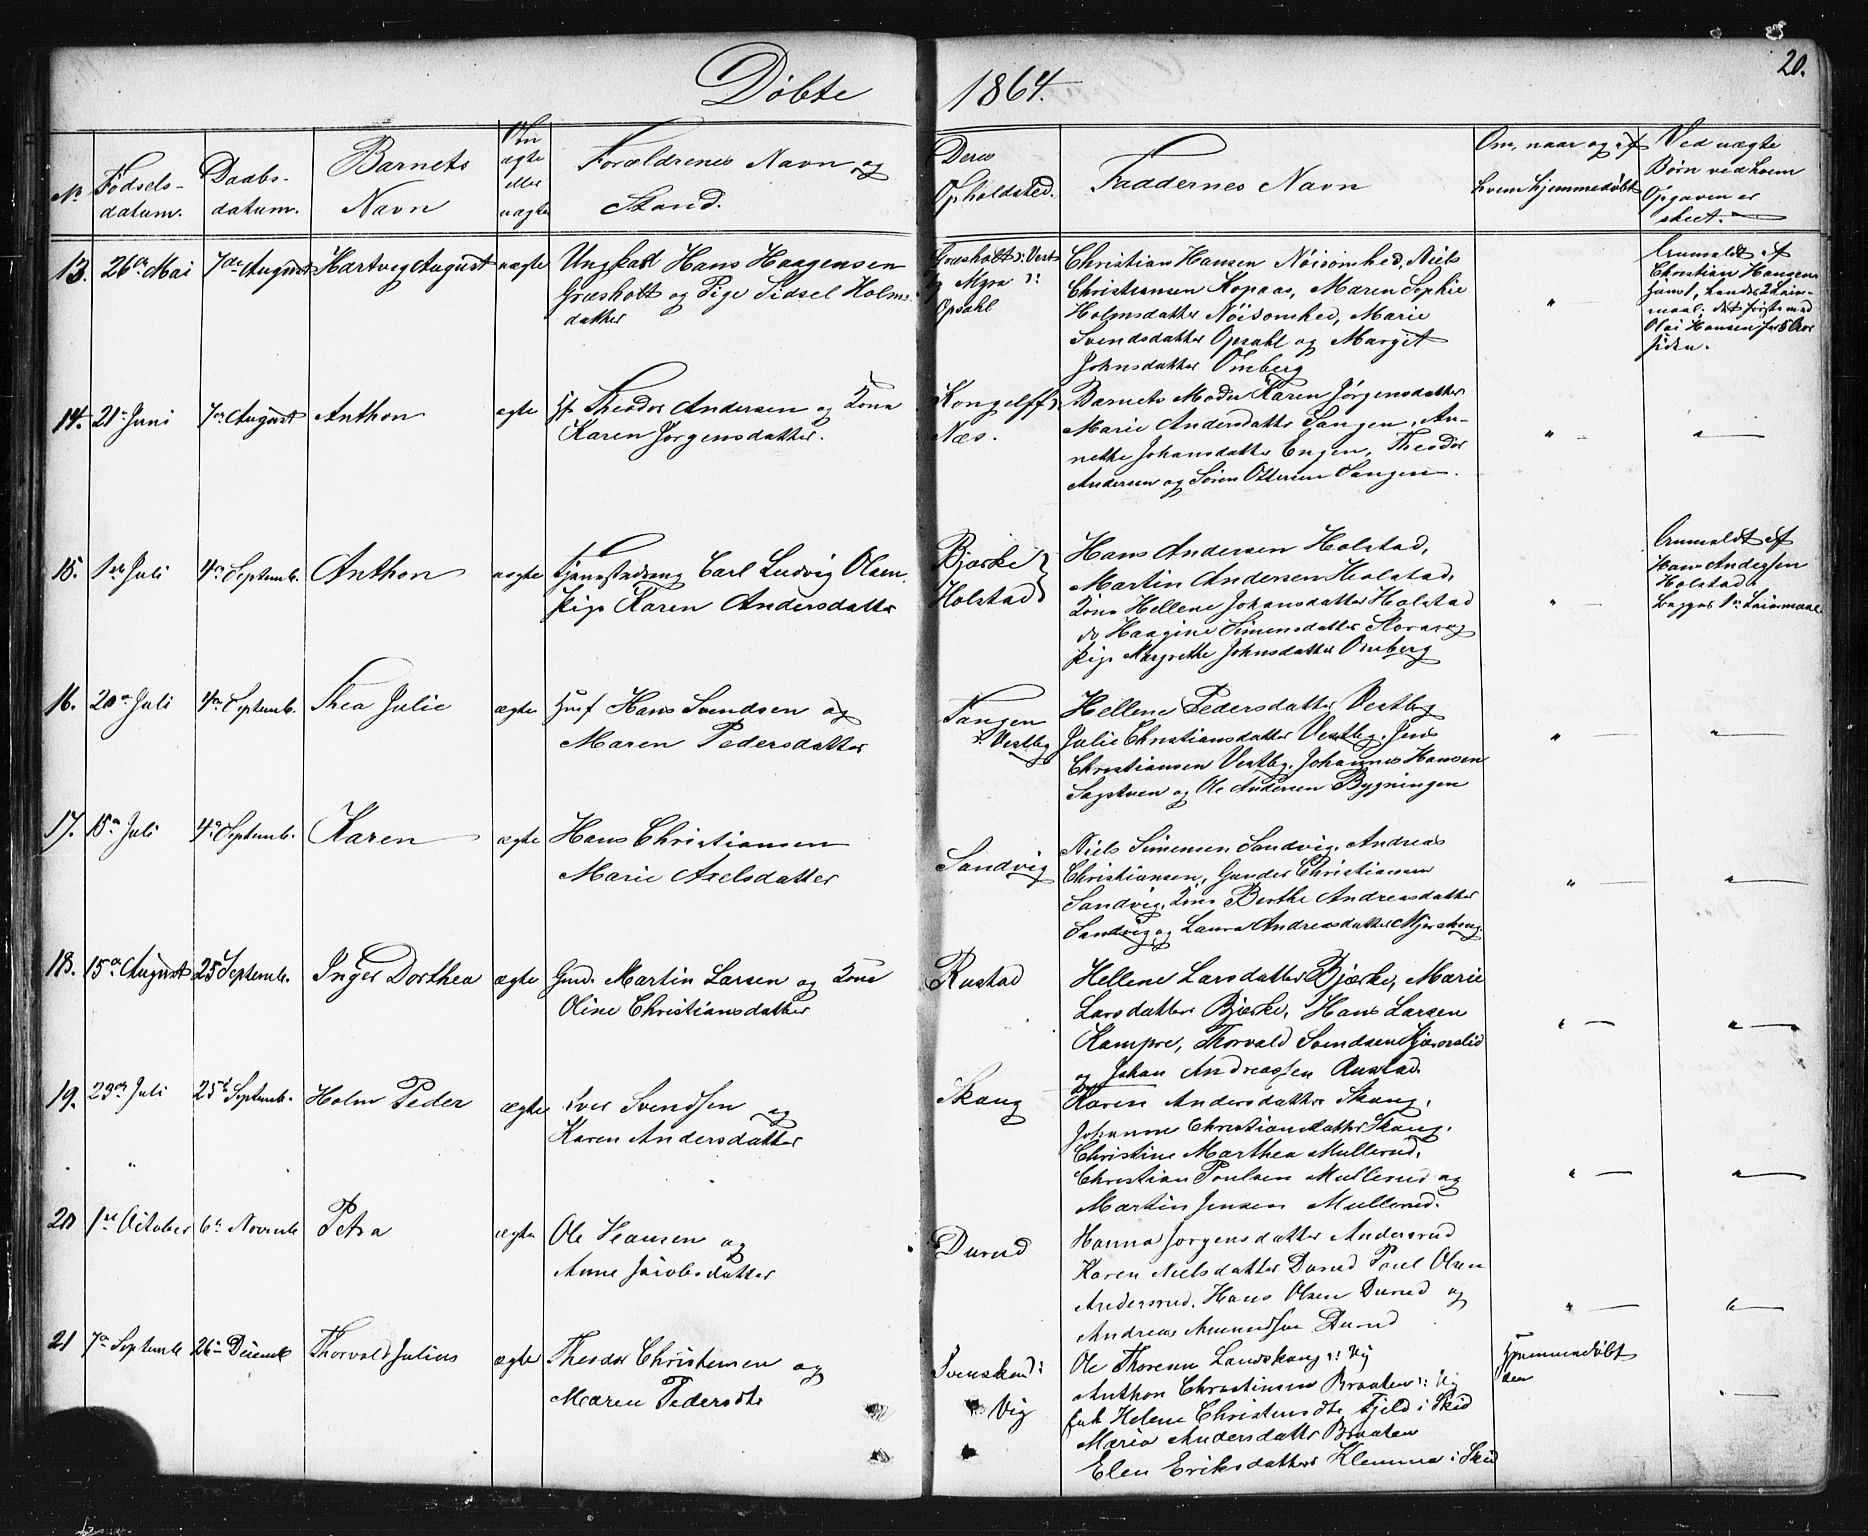 Döbte 1864.
20.
No
Fødsels-
datum.
Daabs-
datum.
Barnets
Navn
Om
ægte
eller
uægte
Forældrenes Navn og
Stand.
Deres
Opholdsted.
Faddernes Navn
Om, naar og af
hvem hjemmedöbt
Ved uægte
Børn ved hvem
Opgaven er
skeet.
13. 26de Mai 7de August Hartvig August uægte Ungkarl Hans Haagensen
Græsholt og Pige Sidsel Holms-
datter
Græsholt i Vest
og Myra i
Opsahl
Christian Hansen Nöisomhed, Niels
Christiansen Kopaas, Maren Sophie
Holmsdatter Nöisomhed, Marie
Svendsdatter Opsahl og Margit
Johnsdatter Omberg
"
Anmeldt af
Christian Hansen
14. 21de Juni 7de August Anthon ægte Theodor Andersen og Kone
Karen Jørgensdatter.
Kongelff
Næs.
Barnets Moder Karen Jørgensdatter
Marie Andersdatter Tangen, An-
nethe Johansdatter Engen, Theodor
Andersen og Sören Ottersen Tangen.
" "
15. 1ste Juli 4de Septemb. Anthon uægte Tjenestedreng Carl Ludvig Olsen,
pige Karen Andersdatter
Bjærke
Holstad
Hans Andersen Holstad,
Martin Andersen Holstad,
Kone Hellene Johansdatter Holstad
do Haagine Simensdatter Korsveg
pige Margrethe Johnsdatter Omberg
"
Anmeldt af
Hans Andersen
Holstad.
Begges 1ste Leiermaal
16. 20de Juli 4de Septemb. Thea Julie ægte Husf Hans Svendsen og
Maren Pedersdatter
Tangen
Vestby
Hellene Pedersdatter Vestby
Julie Christiansdatter Vestby, Jens
Christiansen Vestby, Johannes Hansen
Sagstuen og Ole Andersen Bygningen
" "
17. 15de Juli 4de Septemb. Karen ægte Hans Christiansen
Marie Axelsdatter
Sandvig
Niels Simensen Sandvig, Andreas
Christiansen, Gunder Christiansen
Sandvig, Kone Berthe Andreasdatter
Sandvig og Laura Andreasdatter
" "
18. 15de August 25 Septemb. Inger Dorthea ægte Gmd. Martin Larsen og Kone
Oline Christiansdatter
Rustad
Hellene Larsdatter Bjærke, Marie
Larsdatter Bjærke, Hans Larsen
Kampre, Thorvald Svendsen
og Johan Andreassen Rustad.
" "
19. 23de Juli 25de Septemb. Holm Peder ægte Iver Svendsen og
Karen Andersdatter
Skaug
Karen Andersdatter Skaug,
Johanne Christiansdatter Skaug,
Christine Marthea Mullerud,
Christian Poulsen Mullerud og
Martin Jensen Mullerud.
" "
20 1ste October 6te Novemb Petra ægte Ole Hansen og
Anne Jacobsdatter
Durud
Hanna Jørgensdatter Andersrud
Karen Nielsdatter Durud Poul Olsen
Andersrud, Hans Olsen Durud og
Andreas Amundsen Durud
" "
21 7de Septemb 26de Decemb Thorvald Julius ægte Theodor Christensen og
Maren Pedersdtr
Svensken i
Vig
Ole Thoresen Landskaug i Vig
Anthon Christiansen Braaten i Vig
Helene Christensdtr Fjeld i Skid
Maria Andersdatter Braaten
Elen Eriksdatter Klemma i Skid
Hjemmedöbt
den